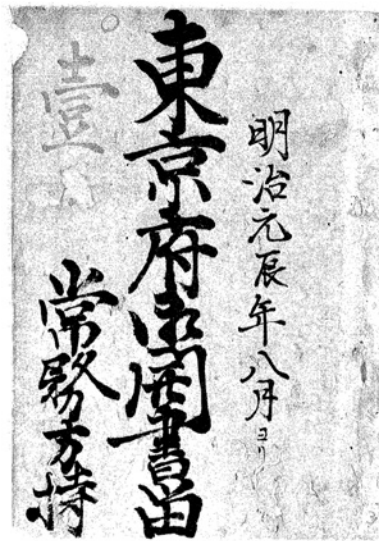 明治元辰年八月ヨリ
東京府御書留
常務方持
壹